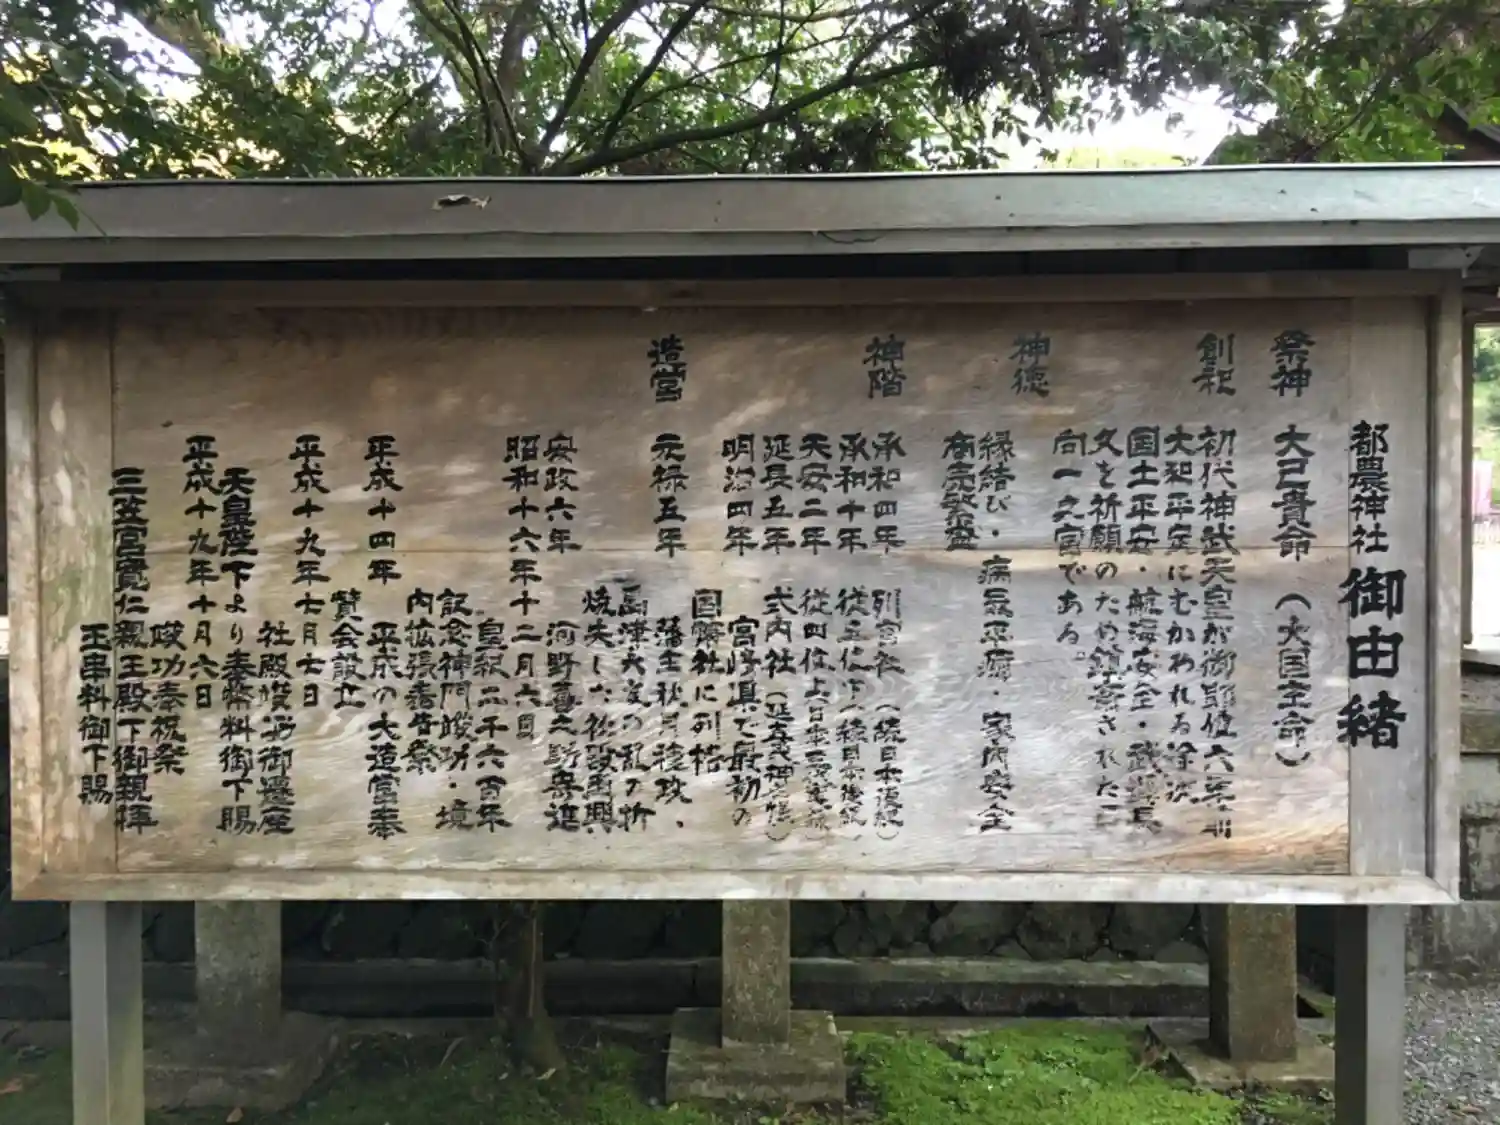 都農神社 御由緒
祭神 大己貴命（大国主命）
創祀 初代神武天皇が御即位六年前
大和平定にむかわれる途次
国土平安・航海安全・武運長
久を祈願のため鎮斎された日
向一之宮である。
神徳 縁結び・病気平癒・家内安全
商売繁盛
神階 承和四年 列官社（続日本後紀）
承和十年 従五位下（続日本後紀）
天安二年 従四位上（日本三代実録）
延長五年 式内社（延喜式神名帳）
宮崎県で最初の
明治四年 国幣社に列格
造営 元禄五年 藩主秋月種政、
島津大友の乱の折
焼失した後設再興
安政六年 河野喜之助寄進
昭和十六年十二月六日
皇紀二千六百年
記念神門竣功・境
内拡張奉告祭
平成十四年 平成の大造営奉
賛会設立
平成十九年七月七日
社殿竣功御遷座
天皇陛下より奉幣料御下賜
平成十九年十月六日
竣功奉祝祭
三笠宮寛仁親王殿下御親拝
玉串料御下賜